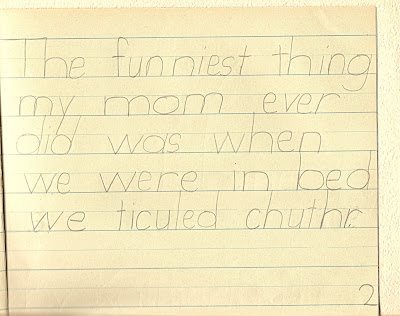 The funniest thing
my mom ever
did was when
we were in bed
we ticuled chuthr.
2